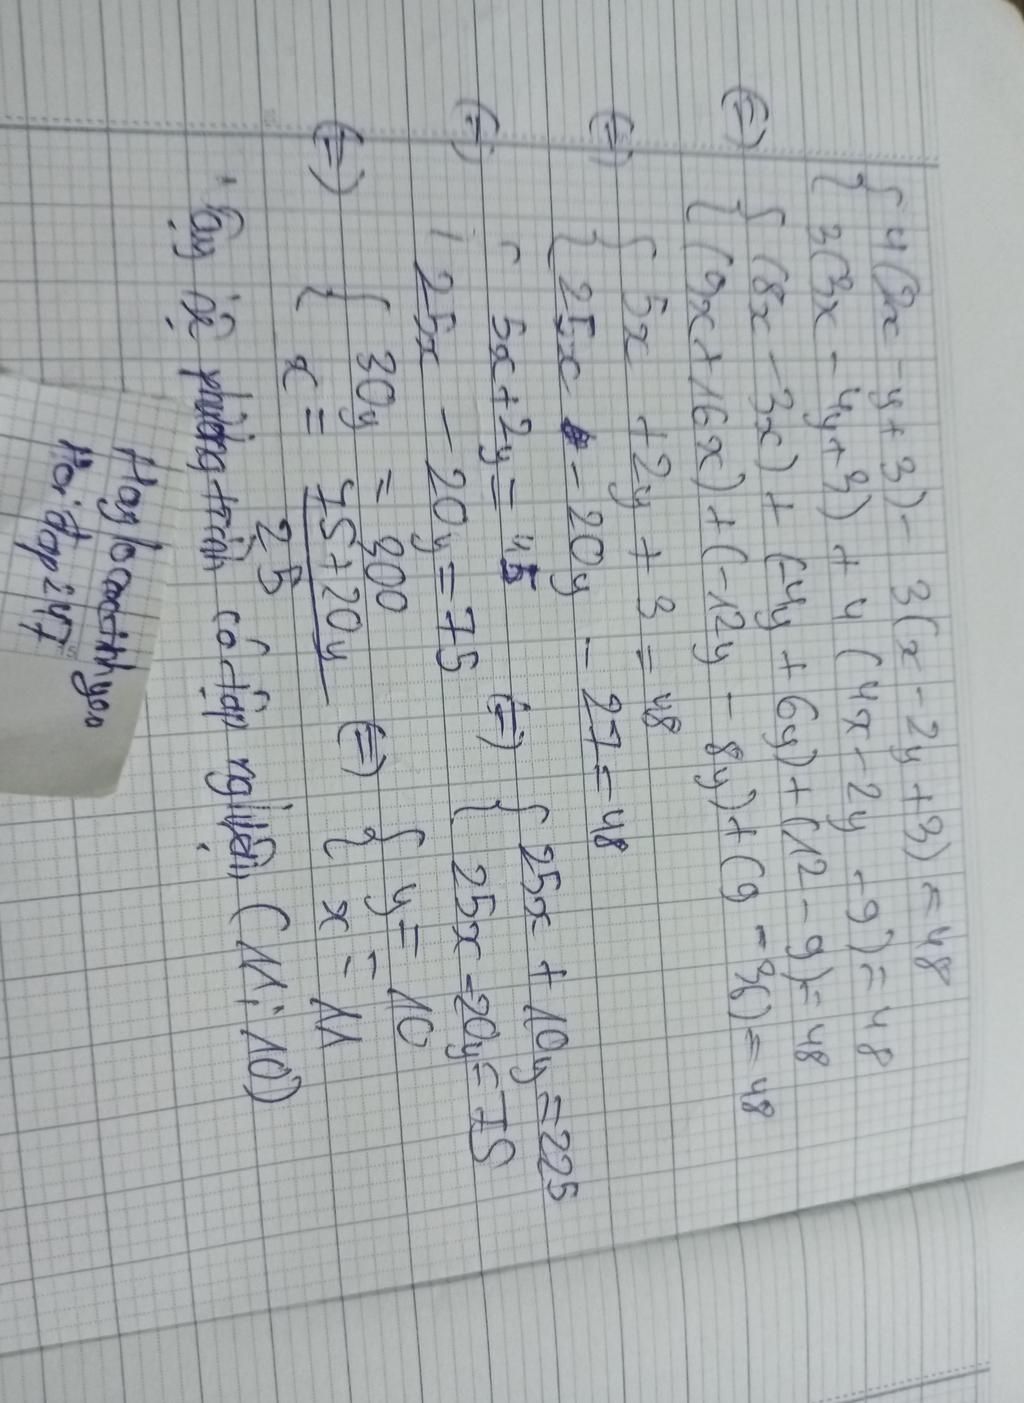 { 4(2x - y + 3) - 3(x - 2y + 3) = 48
{ 3(3x - 4y + 3) + 4(4x - 2y - 9) = 48
(=) { (8x - 3x) + (-4y + 6y) + (12 - 9) = 48
{ (9x + 16x) + (-12y - 8y) + (9 - 36) = 48
(=) { 5x + 2y + 3 = 48
{ 25x - 20y - 27 = 48
(=) { 5x + 2y = 45 (=) { 25x + 10y = 225
{ 25x - 20y = 75 { 25x - 20y = 75
(=) { 30y = 300 (=) { y = 10
{ x = 75 + 20y / 25 { x = 11
Vậy hệ phương trình có tập nghiệm (11; 10)
Hoidap247